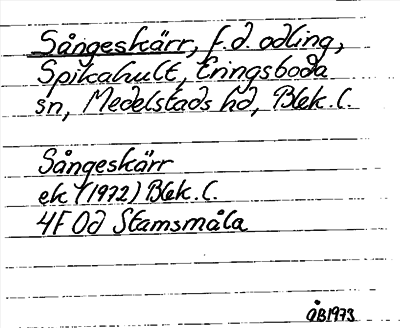 Sångeskärr, f.d. odling,
Spikahult, Eringsboda
sn, Medelstads hd, Blek. l.
Sångeskärr
ek (1972) Blek. l.
4F 0d Stamsmåla
ÖB 1973